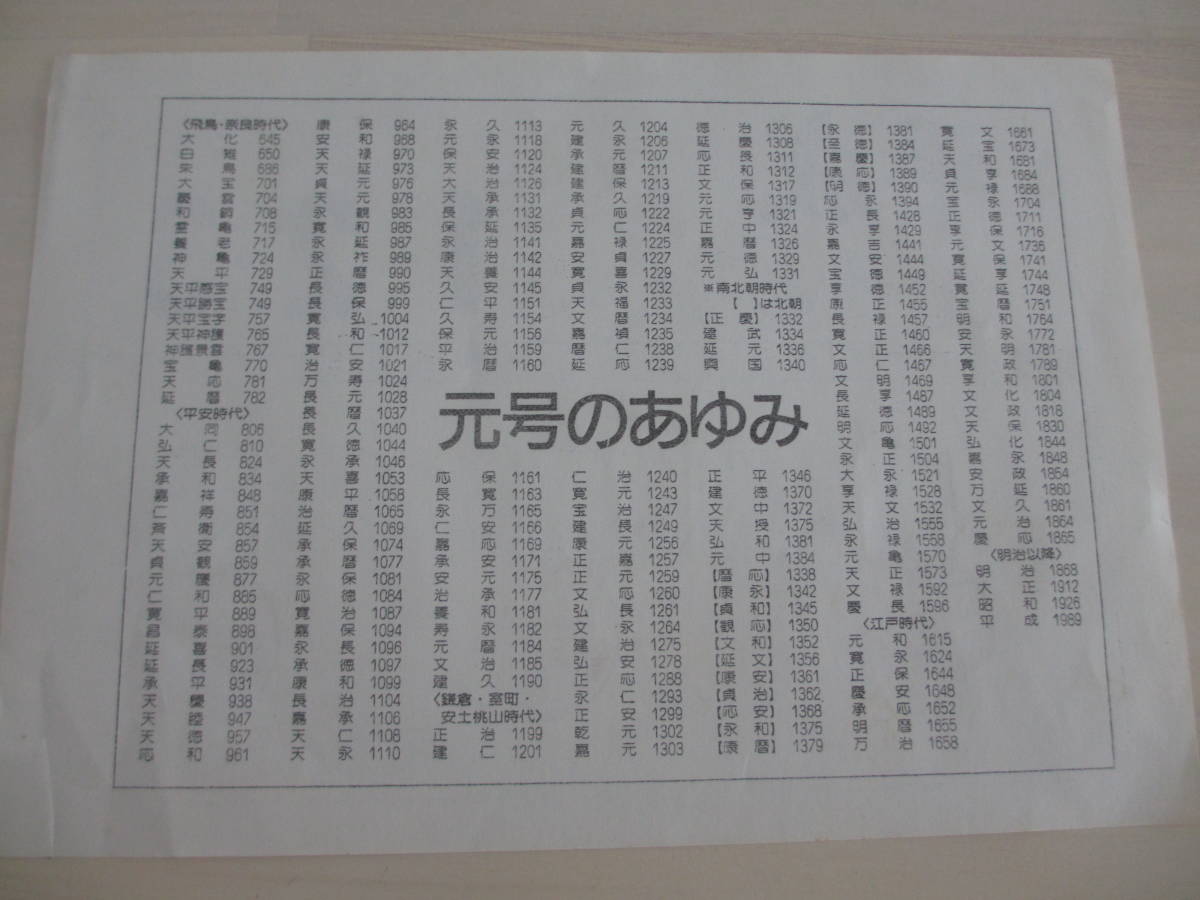 〈飛鳥・奈良時代〉
大化 645
白雉 650
朱鳥 686
大宝 701
慶雲 704
和銅 708
霊亀 715
養老 717
神亀 724
天平 729
天平感宝 749
天平勝宝 749
天平宝字 757
天平神護 765
神護景雲 767
宝亀 770
天応 781
延暦 782
〈平安時代〉
大同 806
弘仁 810
天長 824
承和 834
嘉祥 848
仁寿 851
斉衡 854
天安 857
貞観 859
元慶 877
仁和 885
寛平 889
昌泰 898
延喜 901
延長 923
承平 931
天慶 938
天暦 947
天徳 957
応和 961
康保 964
安和 968
天禄 970
天延 973
貞元 976
天元 978
永観 983
寛和 985
永延 987
永祚 989
正暦 990
長徳 995
長保 999
寛弘 1004
長和 1012
寛仁 1017
治安 1021
万寿 1024
長元 1028
長暦 1037
長久 1040
寛徳 1044
永承 1046
天喜 1053
康平 1058
治暦 1065
延久 1069
承保 1074
承暦 1077
永保 1081
応徳 1084
寛治 1087
嘉保 1094
永長 1096
承徳 1097
康和 1099
長治 1104
嘉承 1106
天仁 1108
天永 1110
永久 1113
元永 1118
保安 1120
天治 1124
大治 1126
天承 1131
長承 1132
保延 1135
永治 1141
康治 1142
天養 1144
久安 1145
仁平 1151
久寿 1154
保元 1156
平治 1159
永暦 1160
元久 1204
建永 1206
承元 1207
建暦 1211
建保 1213
承久 1219
貞応 1222
元仁 1224
嘉禄 1225
安貞 1227
寛喜 1229
貞永 1232
天福 1233
文暦 1234
嘉禎 1235
暦仁 1238
延応 1239
徳治 1306
延慶 1308
応長 1311
正和 1312
文保 1317
元応 1319
元亨 1321
正中 1324
嘉暦 1326
元徳 1329
元弘 1331
※南北朝時代
【 】は北朝
【正慶】1332
建武 1334
延元 1336
興国 1340
元号のあゆみ
応保 1161
長寛 1163
永万 1165
仁安 1166
嘉応 1169
承安 1171
安元 1175
治承 1177
養和 1181
寿永 1182
元暦 1184
文治 1185
建久 1190
〈鎌倉・室町・
安土桃山時代〉
正治 1199
建仁 1201
仁治 1240
寛元 1243
宝治 1247
建長 1249
康元 1256
正嘉 1257
正元 1259
文応 1260
弘長 1261
文永 1264
建治 1275
弘安 1278
正応 1288
永仁 1293
正安 1299
乾元 1302
嘉元 1303
正平 1346
建徳 1370
文中 1372
天授 1375
弘和 1381
元中 1384
【暦応】1338
【康永】1342
【貞和】1345
【観応】1350
【文和】1352
【延文】1356
【康安】1361
【貞治】1362
【応安】1368
【永和】1375
【康暦】1379
【永徳】1381
【至徳】1384
【嘉慶】1387
【康応】1389
【明徳】1390
応永 1394
正長 1428
永享 1429
嘉吉 1441
文安 1444
宝徳 1449
享徳 1452
康正 1455
長禄 1457
寛正 1460
文正 1466
応仁 1467
文明 1469
長享 1487
延徳 1489
明応 1492
文亀 1501
永正 1504
大永 1521
享禄 1528
天文 1532
弘治 1555
永禄 1558
元亀 1570
天正 1573
文禄 1592
慶長 1596
〈江戸時代〉
元和 1615
寛永 1624
正保 1644
慶安 1648
承応 1652
明暦 1655
万治 1658
寛文 1661
延宝 1673
天和 1681
貞享 1684
元禄 1688
宝永 1704
正徳 1711
享保 1716
元文 1736
寛保 1741
延享 1744
寛延 1748
宝暦 1751
明和 1764
安永 1772
天明 1781
寛政 1789
享和 1801
文化 1804
文政 1818
天保 1830
弘化 1844
嘉永 1848
安政 1854
万延 1860
文久 1861
元治 1864
慶応 1865
〈明治以降〉
明治 1868
大正 1912
昭和 1926
平成 1989